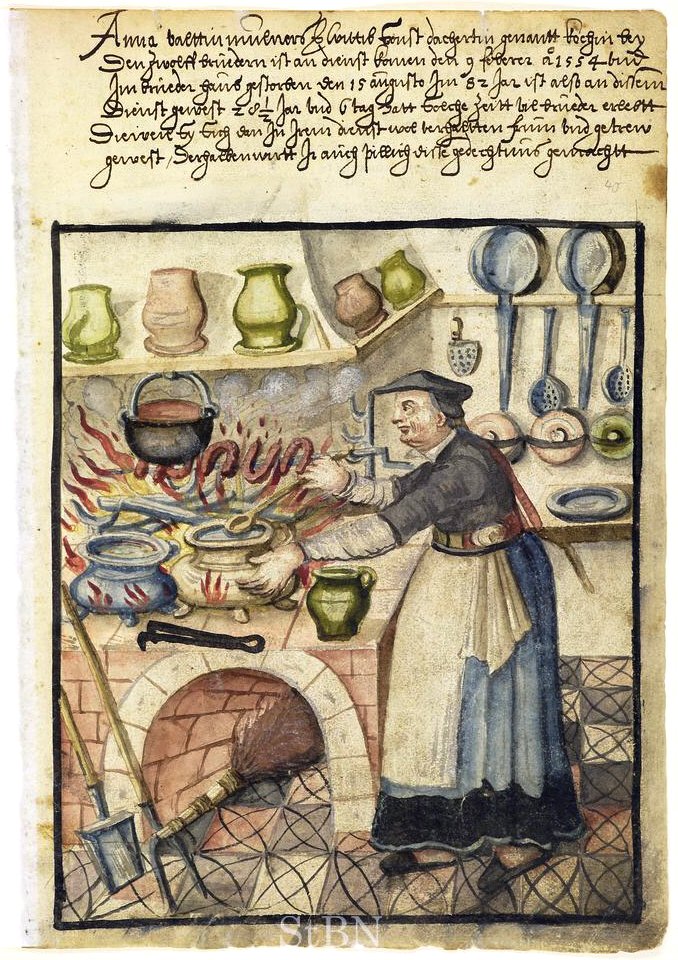 Anna valttin müllners Wittib sonst dachertin genantt köchin bey
Den zwölff brüedern ist an dienst komen den 9 feberer a 1554 vnd
Im brüeder haus gestorben den 15 augusto Im 82 Jar ist also an dissem
Dienst gewest 28½ Jar vnd 6 tag hatt solche zeitt brüeder erlebtt
Dieweil Sy Sich dan In Irem dienst wol verhaltten frum vnd getrew
gewest, Derhalben wirtt Ir auch pillich disse gedechtnus gemachtt
40
StBN